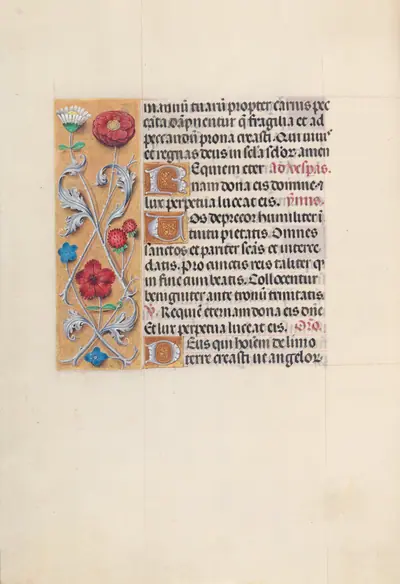 manuū tuarū propter carnis pec
cata dāpnentur q̄ fragilia et ad
peccandū prona creasti. Qui viuis
et regnas deus in scl̄a scl̄oꝝ amen
Requiem eter Ad vesp̄as.
nam dona eis domine. ⁊
lux perpetua luceat eis. ym̄is.
Vos deprecor humiliter ī
tuitu pietatis. Omnes
sanctos et pariter sc̄as et interce
datis. Pro cunctis reis taliter q̄
in fine sint beatis. Collocentur
benigniter ante tronū trinitatis
V̄. Requiē eternam dona eis dn̄e
Et lux perpetua luceat eis. Or̄o.
Deus qui hoīem de limo
terre creasti ut angelor